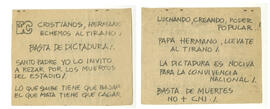 CRISTIANOS, HERMANOS
ECHEMOS AL TIRANO!.
BASTA DE DICTADURA!.
SANTO PADRE YO LO INVITO
A REZAR POR LOS MUERTOS
DEL ESTADIO!.
LO QUE SUBE TIENE QUE BAJAR
EL QUE MATA TIENE QUE CAGAR.
LUCHANDO, CREANDO, PODER
POPULAR.
PAPA HERMANO, LLEVATE
AL TIRANO!.
LA DICTADURA ES NOCIVA
PARA LA CONVIVENCIA
NACIONAL!
BASTA DE MUERTES
NO + CNI!